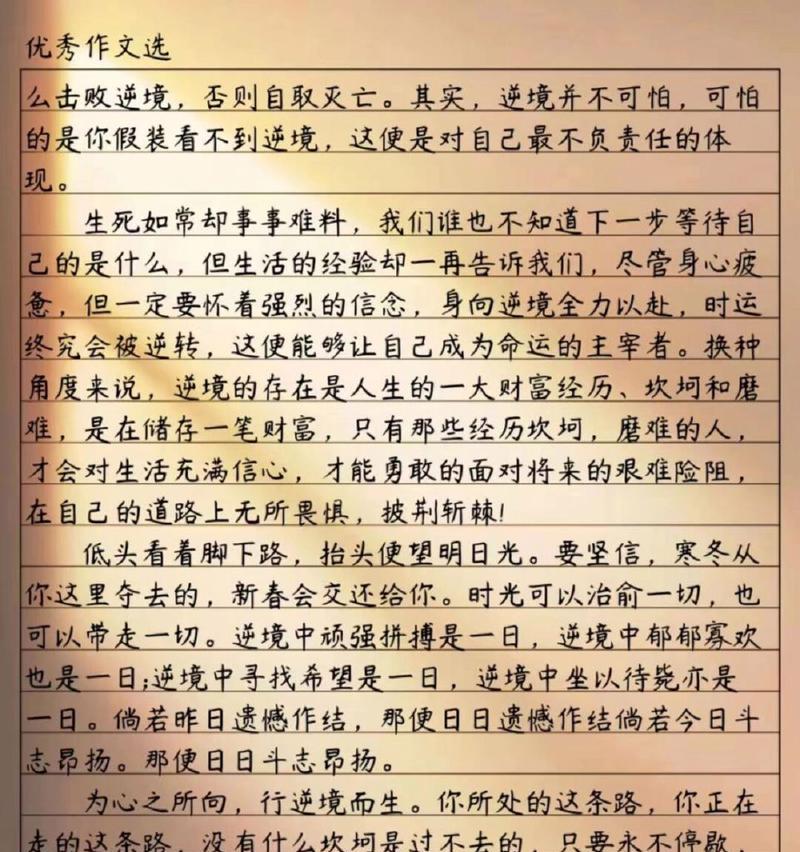 优秀作文选
么击败逆境，否则自取灭亡。其实，逆境并不可怕，可怕
的是你假装看不到逆境，这便是对自己最不负责任的体
现。
生死如常却事事难料，我们谁也不知道下一步等待自
己的是什么，但生活的经验却一再告诉我们，尽管身心疲
惫，但一定要怀着强烈的信念，身向逆境全力以赴，时运
终究会被逆转，这便能够让自己成为命运的主宰者。换种
角度来说，逆境的存在是人生的一大财富经历、坎坷和磨
难，是在储存一笔财富，只有那些经历坎坷，磨难的人，
才会对生活充满信心，才能勇敢的面对将来的艰难险阻，
在自己的道路上无所畏惧，披荆斩棘！
低头看着脚下路，抬头便望明日光。要坚信，寒冬从
你这里夺去的，新春会交还给你。时光可以治俞一切，也
可以带走一切。逆境中顽强拼搏是一日，逆境中郁郁寡欢
也是一日;逆境中寻找希望是一日，逆境中坐以待毙亦是
一日。倘若昨日遗憾作结，那便日日遗憾作结倘若今日斗
志昂扬。那便日日斗志昂扬。
为心之所向，行逆境而生。你所处的这条路，你正在
走的这条路，没有什么坎坷是过不去的，只要永不停歇，